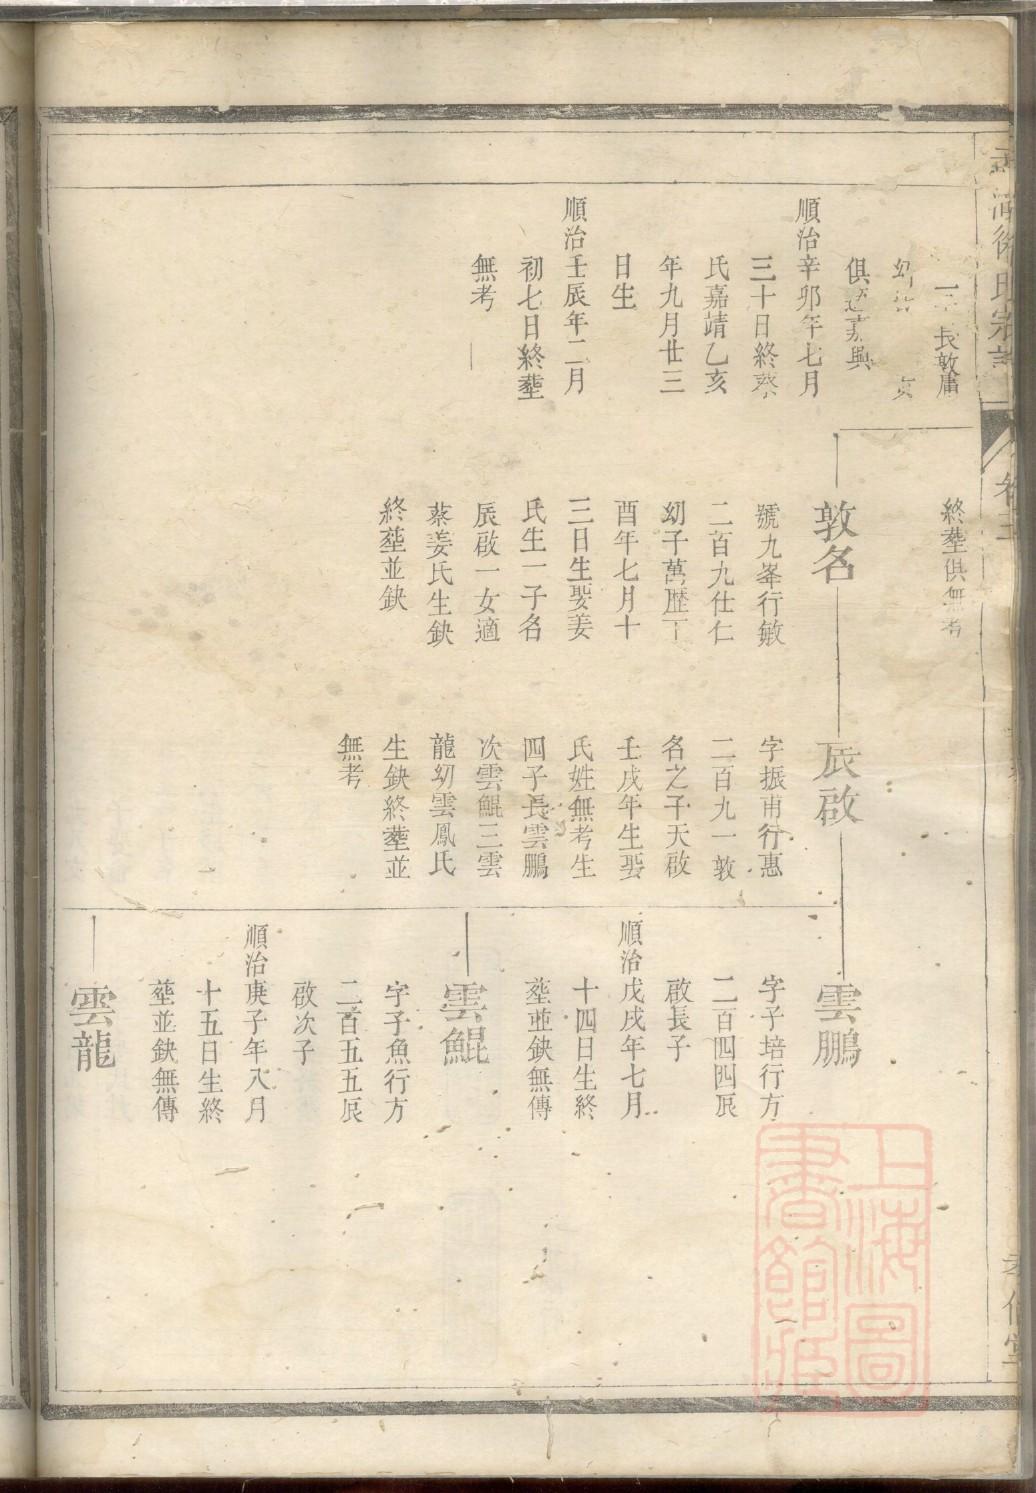 長敦庸
幼
俱適嘉興
順治辛卯年七月
三十日終葬
氏嘉靖乙亥
年九月廿三
日生
順治壬辰年二月
初七日終塟
無考
終塟俱無考
敦名
號九峯行敏
二百九仕仁
幼子萬歴丁
酉年七月十
三日生娶姜
氏生一子名
辰啟一女適
蔡姜氏生缺
終塟並缺
辰啟
字振甫行惠
二百九一敦
名之子天啟
壬戌年生娶
氏姓無考生
四子長雲鵬
次雲鯤三雲
龍幼雲鳳氏
生缺終塟並
無考
雲鵬
字子培行方
二百四四辰
啟長子
順治戊戌年七月
十四日生終
塟並缺無傳
雲鯤
字子魚行方
二百五五辰
啟次子
順治庚子年八月
十五日生終
塟並缺無傳
雲龍
氏宗譜
卷三
上海圖
書館藏